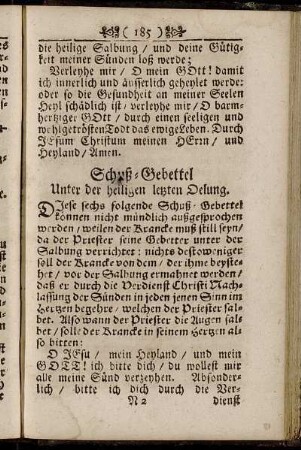 ( 185 )
die heilige Salbung / und deine Gütig-
keit meiner Sünden loß werde;
Verleyhe mir / O mein GOtt! damit
ich innerlich und äusserlich geheylet werde:
oder so die Gesundheit an meiner Seelen
Heyl schädlich ist / verleyhe mir / O barm-
hertziger GOtt / durch einen seeligen und
wohlgetrösten Todt das ewige Leben. Durch
JEsum Christum meinen HErrn / und
Heyland / Amen.
Schuß-Gebettel
Unter der heiligen letzten Oelung.
DJese sechs folgende Schuß-Gebettel
können nicht mündlich außgesprochen
werden / weilen der Krancke muß still seyn /
da der Priester seine Gebetter unter der
Salbung verrichtet: nichts destoweniger
soll der Krancke von dem / der ihme beyste-
het / vor der Salbung ermahnet werden /
daß er durch die Verdienst Christi Nach-
lassung der Sünden in jeden jenen Sinn im
Hertzen begehre / welchen der Priester sal-
bet. Also wann der Priester die Augen sal-
bet / soll der Krancke in seinem Hertzen al-
so bitten:
O JEsu / mein Heyland / und mein
GOTT! ich bitte dich / du wollest mir
alle meine Sünd verzeyhen. Absonder-
lich / bitte ich dich durch die Ver-
N 2 dienst